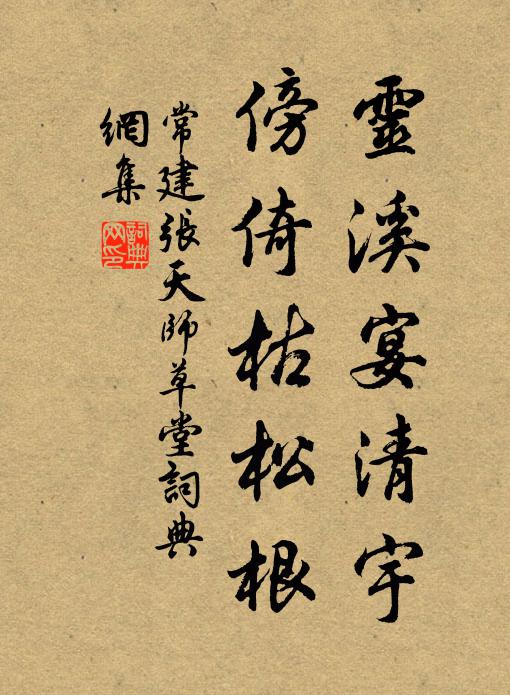 靈溪宴清宇
傍倚枯松根
常建張天師草堂詞典
網集
詞典
网印